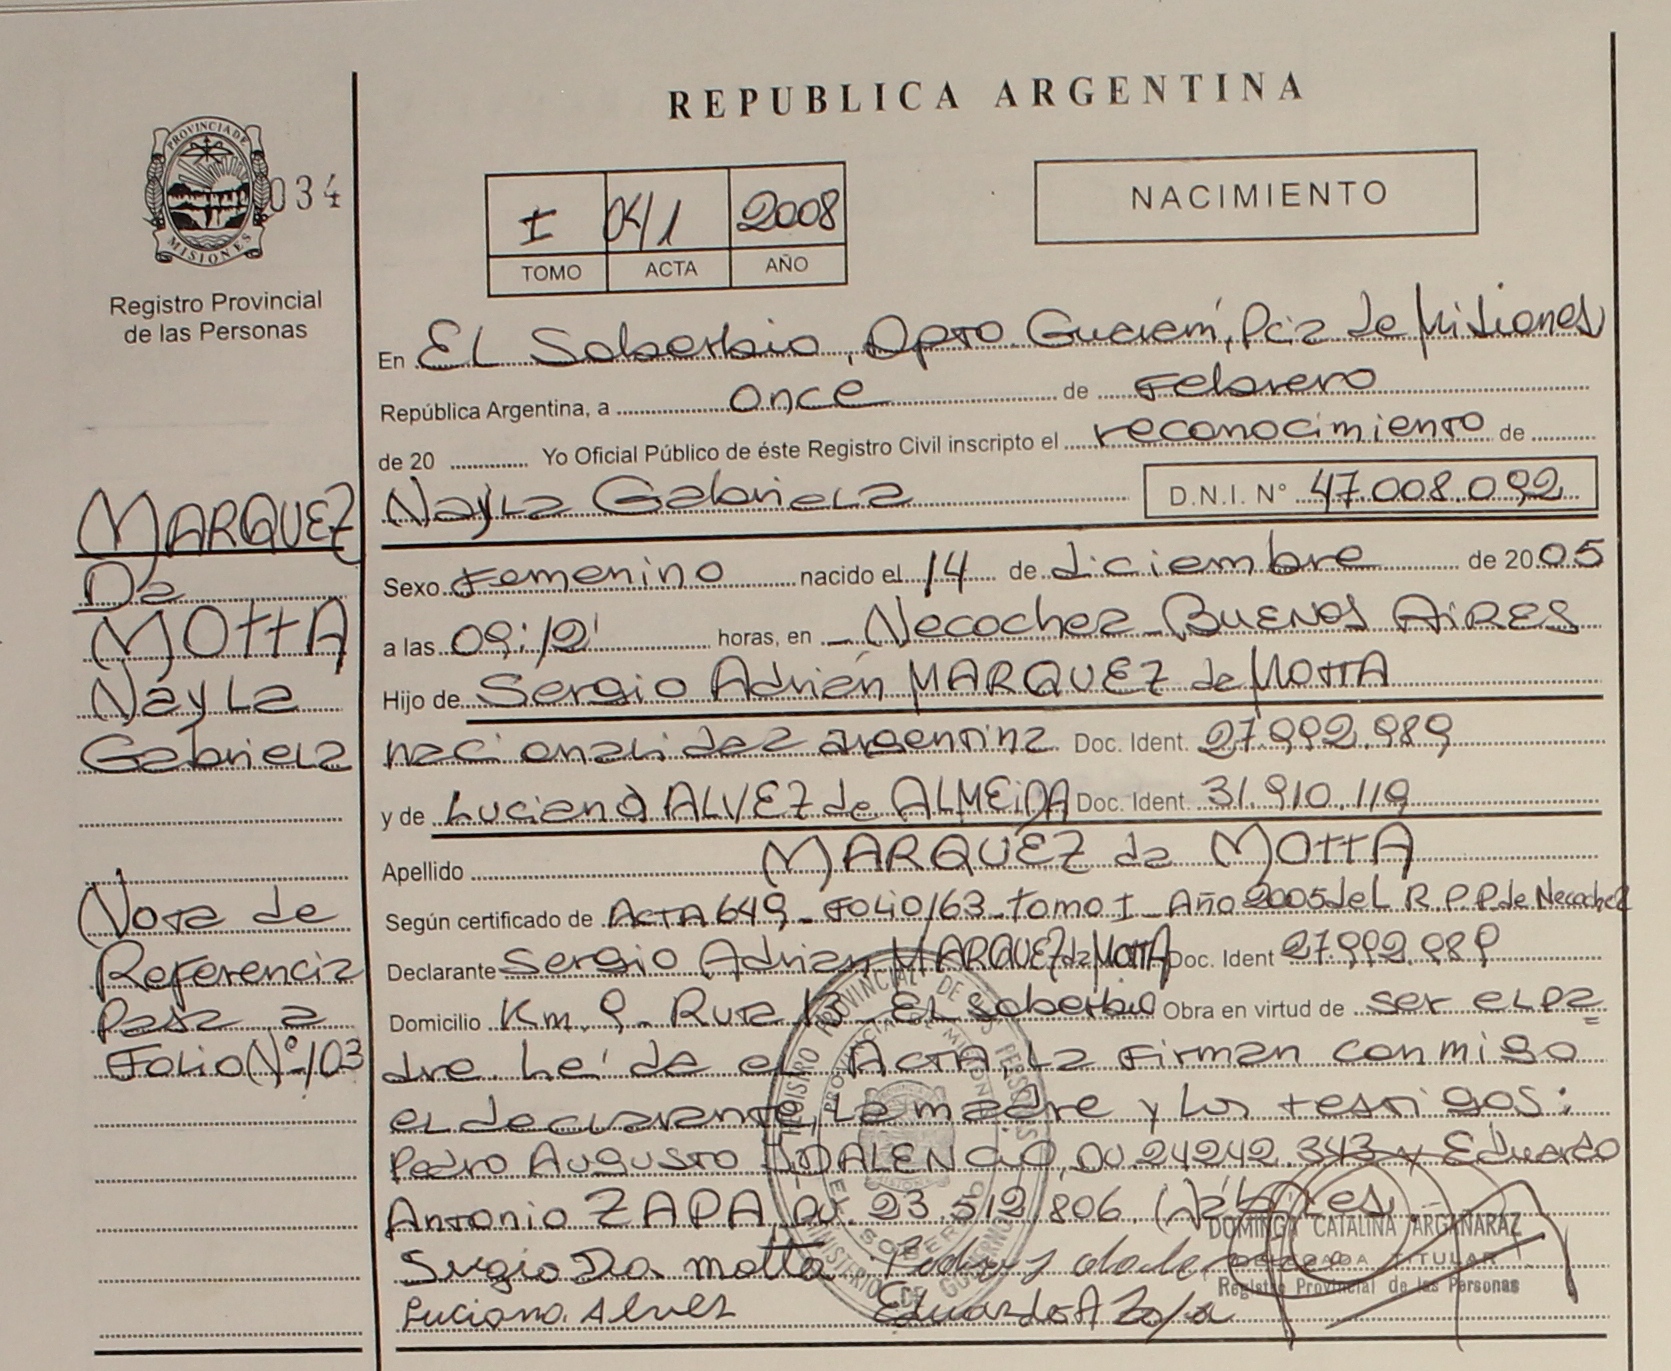 REPUBLICA ARGENTINA
PROVINCIA DE
MISIONES
034
Registro Provincial
de las Personas
I 041 2008
TOMO ACTA AÑO
NACIMIENTO
En EL Soberbio, Dpto Guaraní, Pcia de Misiones
República Argentina, a once de Febrero
de 20 Yo Oficial Público de éste Registro Civil inscripto el reconocimiento de
Nayla Gabriela D.N.I. Nº 47.008.092
Sexo Femenino nacido el 14 de diciembre de 2005
a las 09:12' horas, en Necochea Buenos Aires
Hijo de Sergio Adrián MARQUEZ da MOttA
nacionalidad argentina Doc. Ident. 27.992.989
y de Luciana ALVEZ de ALMEiDA Doc. Ident. 31.910.119
Apellido MARQUEZ da MOttA
Según certificado de ActA 649 - Folio 163 - tomo I - Año 2005 deL R.P.P de Necochea
Declarante Sergio Adrian MARQUEZ da MottA Doc. Ident 27.992.989
Domicilio Km. 9 - Ruta 13 - EL Soberbio Obra en virtud de ser eL pa
dre. Leída el ActA, La Firman conmigo
el declarante, La madre y los testigos:
Pedro Augusto DALENCIO, DU 24242.343 y Eduardo
Antonio ZAPA, DU. 23.512.806,
Sergio Da motta
Luciana. Alves Eduardo A Zapa
DOMINGA CATALINA ARGAÑARAZ
DELEGADA TITULAR
Registro Provincial de las Personas
MARQUEZ
Da
MOttA
Nayla
Gabriela
Nota de
Referencia
Pasa a
Folio Nº 103